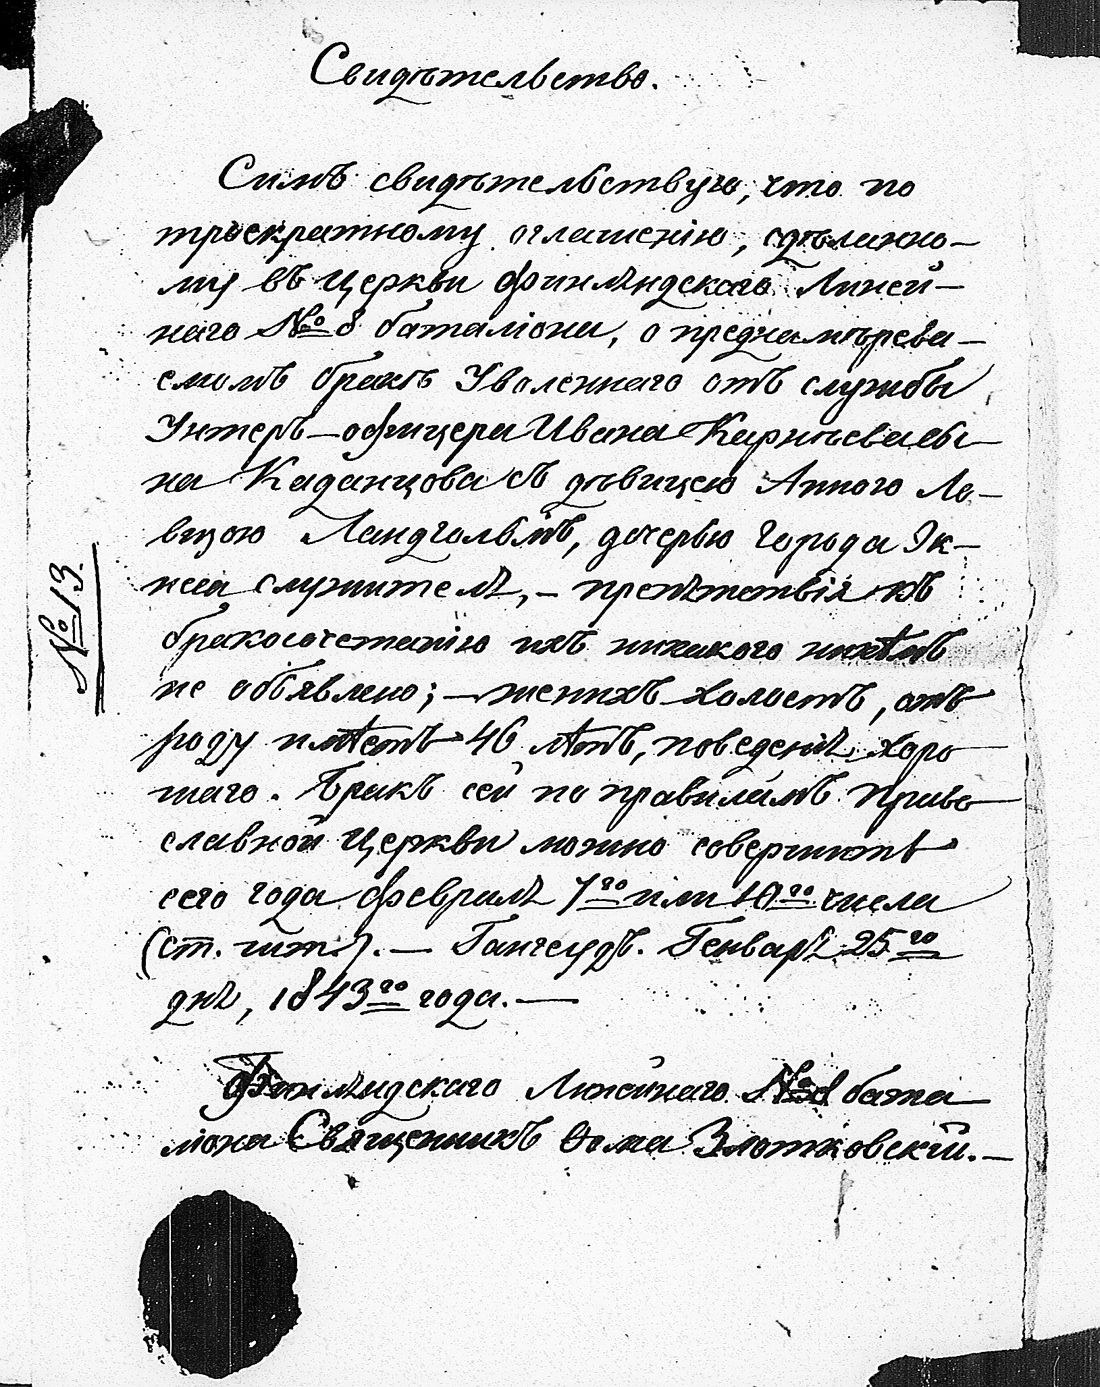 Свидѣтельство.
Симъ свидѣтельствую, что по
троекратному оглашенію, сдѣланно-
му въ Церкви Финляндскаго Линей-
наго № 8 баталіона, о преднамѣрева-
емомъ бракѣ Уволеннаго отъ службы
Унтеръ-офицера Ивана Карнѣева сы-
на Каданцова съ дѣвицею Анною Ло-
визою Ландгольмъ, дочерью города Эк-
неса служителя, - препятствія къ
бракосочетанію ихъ никакого никѣмъ
не объявлено; - женихъ холостъ, отъ
роду имѣетъ 46 лѣтъ, поведенія хоро
шаго. Бракъ сей по правиламъ Право
славной Церкви можно совершить
сего года февраля 7го или 10го числа
(ст. шт.). — Гангеудъ. Генваря 25го
дня, 1843го года. —
Финляндскаго Линейнаго № 8 бата
ліона Священникъ Ѳома Злотковскій. —
№ 13.